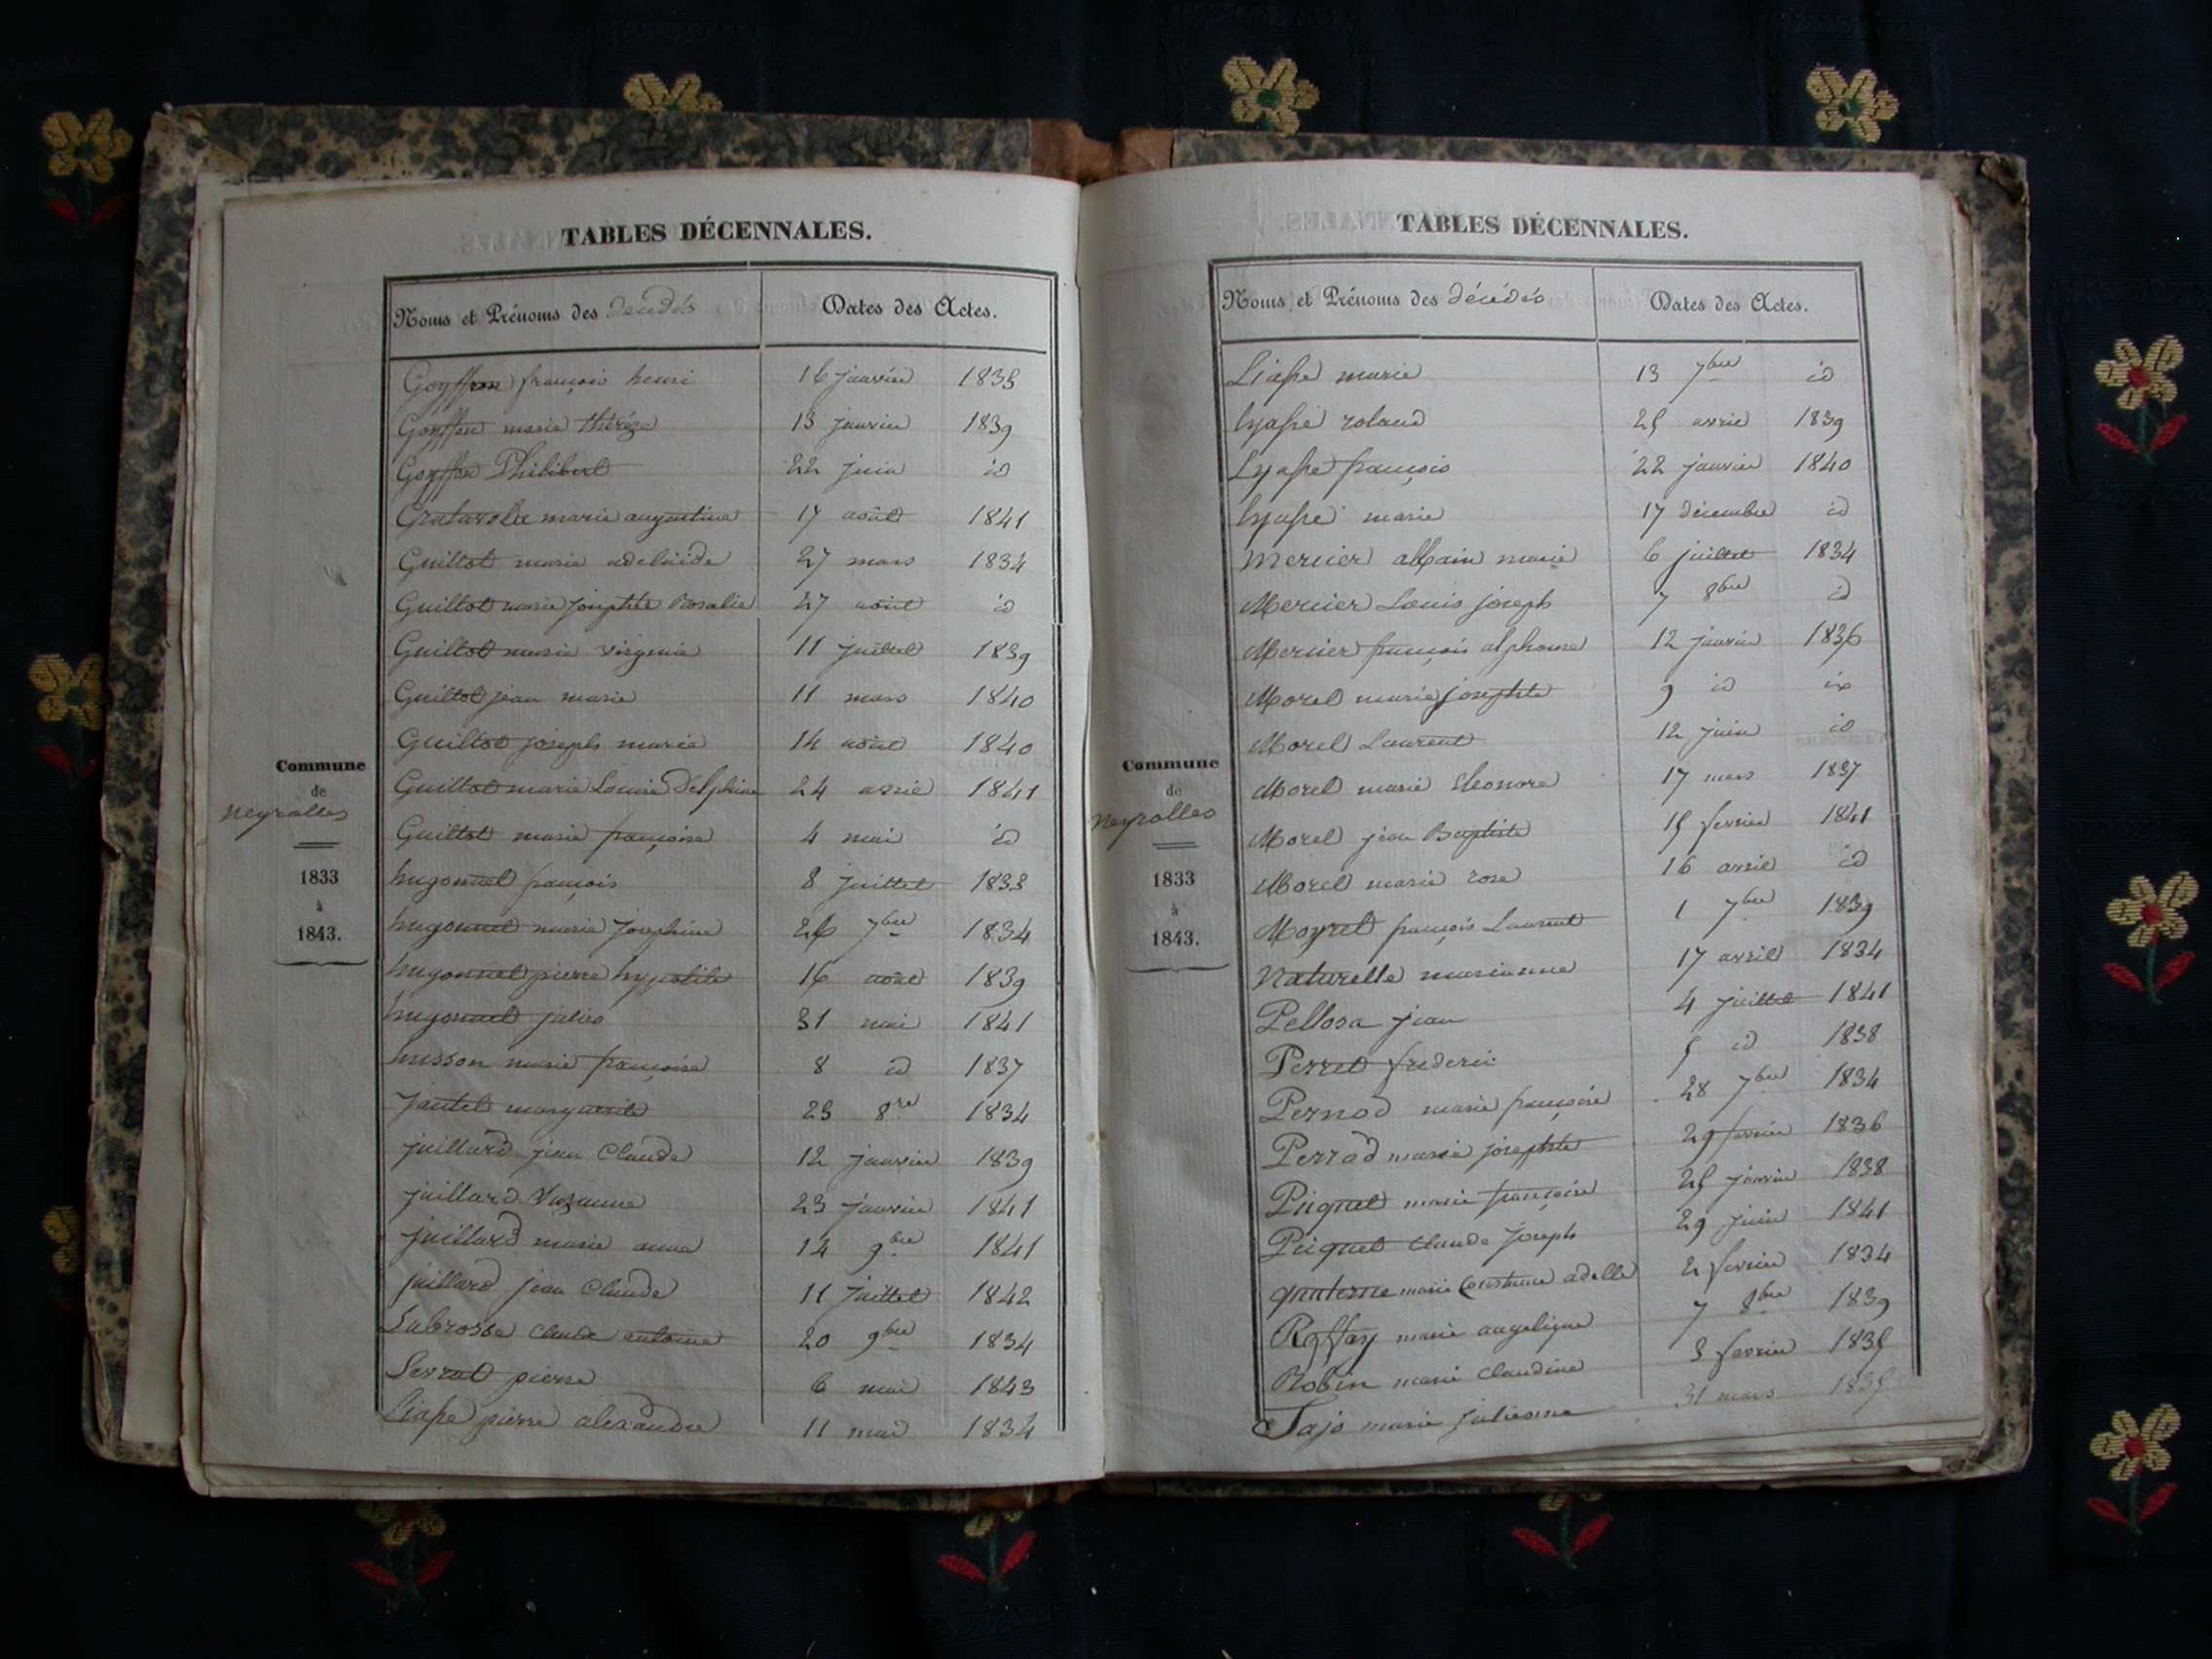 TABLES DÉCENNALES.
Noms et Prénoms des décédés Dates des Actes.
Goyffon françois henri 16 janvier 1835
Goyffon marie thérèze 13 janvier 1839
Goyffon Philibert 22 juin id
Gratarola marie augustine 17 août 1841
Guillot marie adelaide 27 mars 1834
Guillot marie josephte Rosalie 27 août id
Guillot marie virginie 11 juillet 1839
Guillot jean marie 11 mars 1840
Guillot joseph marie 14 août 1840
Guillot marie Louise Delphine 24 avril 1841
Guillot marie françoise 4 mai id
hugonnet françois 8 juillet 1833
hugonnet marie josephine 26 7bre 1834
hugonnet pierre hypolite 16 août 1839
hugonnet julies 31 mai 1841
husson marie françoise 8 id 1837
Jantet marguerite 23 8re 1834
juillard jean Claude 12 janvier 1839
juillard Suzanne 23 janvier 1841
juillard marie anna 14 9bre 1841
juillard jean Claude 11 juillet 1842
Labrosse Claude antoine 20 9bre 1834
Serrat pierre 6 mai 1843
Liaße pierre alexandre 11 mai 1834
Commune
de
neyrolles
1833
à
1843.
TABLES DÉCENNALES.
Noms et Prénoms des décédés Dates des Actes.
Liaße marie 13 7bre id
lyaße roland 25 avril 1839
Lyaße françois 22 janvier 1840
lyaße marie 17 décembre id
mercier alban marie 6 juillet 1834
Mercier Louis joseph 7 8bre id
Mercier françois alphonse 12 janvier 1836
Morel marie josephte 9 id id
Morel Laurent 12 juin id
Morel marie Eleonore 17 mars 1837
Morel jean Baptiste 15 fevrier 1841
Morel marie rose 16 avril id
Moyret françois Laurent 1 7bre 1839
Naturelle marianne 17 avril 1834
Pellosa jean 4 juillet 1841
Perret frederic 5 id 1838
Pernod marie françoise 28 7bre 1834
Perrod marie josephte 29 fevrier 1836
Piquet marie françoise 25 janvier 1838
Piquet Claude Joseph 29 juin 1841
quaterne marie Constance adelle 2 fevrier 1834
Roffay marie angelique 7 8bre 1839
Robin marie Claudine 3 fevrier 1835
Sajo marie julienne 31 mars 1835
Commune
de
neyrolles
1833
à
1843.